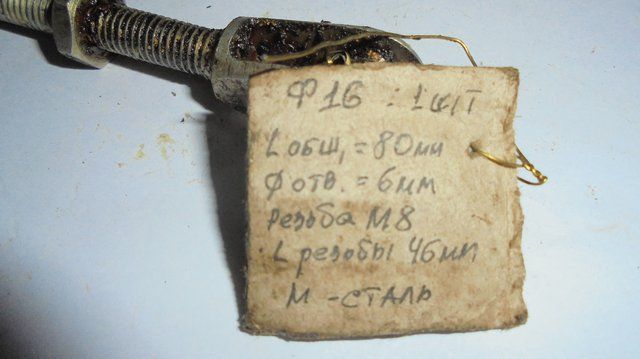 Ф16 : 1 шт
L общ, = 80мм
Ф отв. = 6мм
Резьба М8
L резьбы 46мм
М - СТАЛЬ